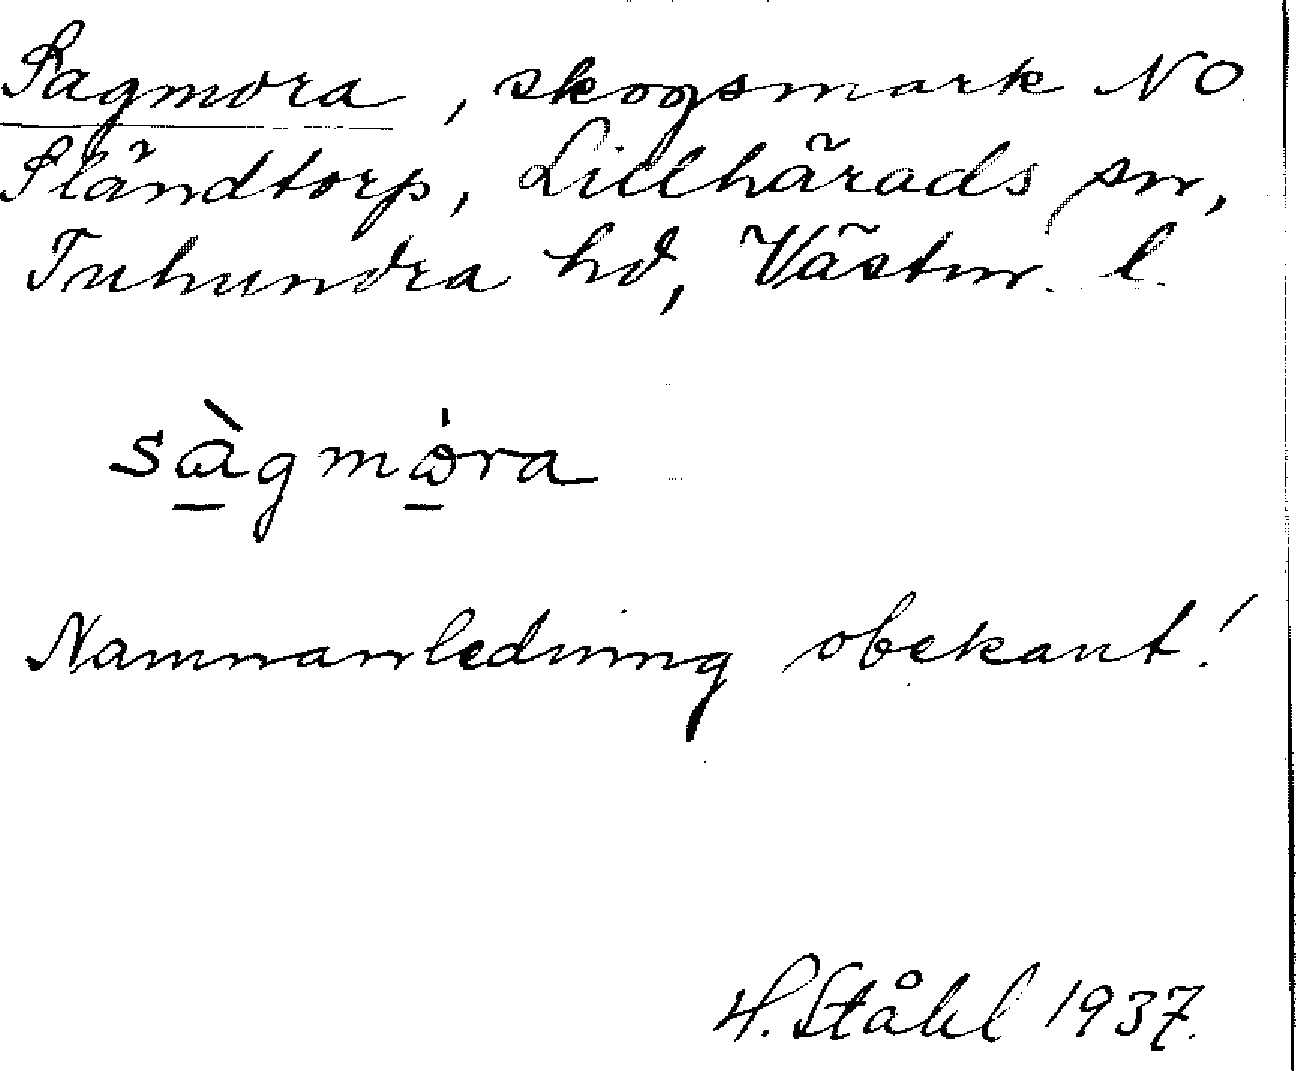 Sagmora, skogsmark NO
Sländtorp, Lillhärads sn,
Tuhundra hd, Västm. l.
sàgmòra
Namnanledning obekant!
H. Ståhl 1937.